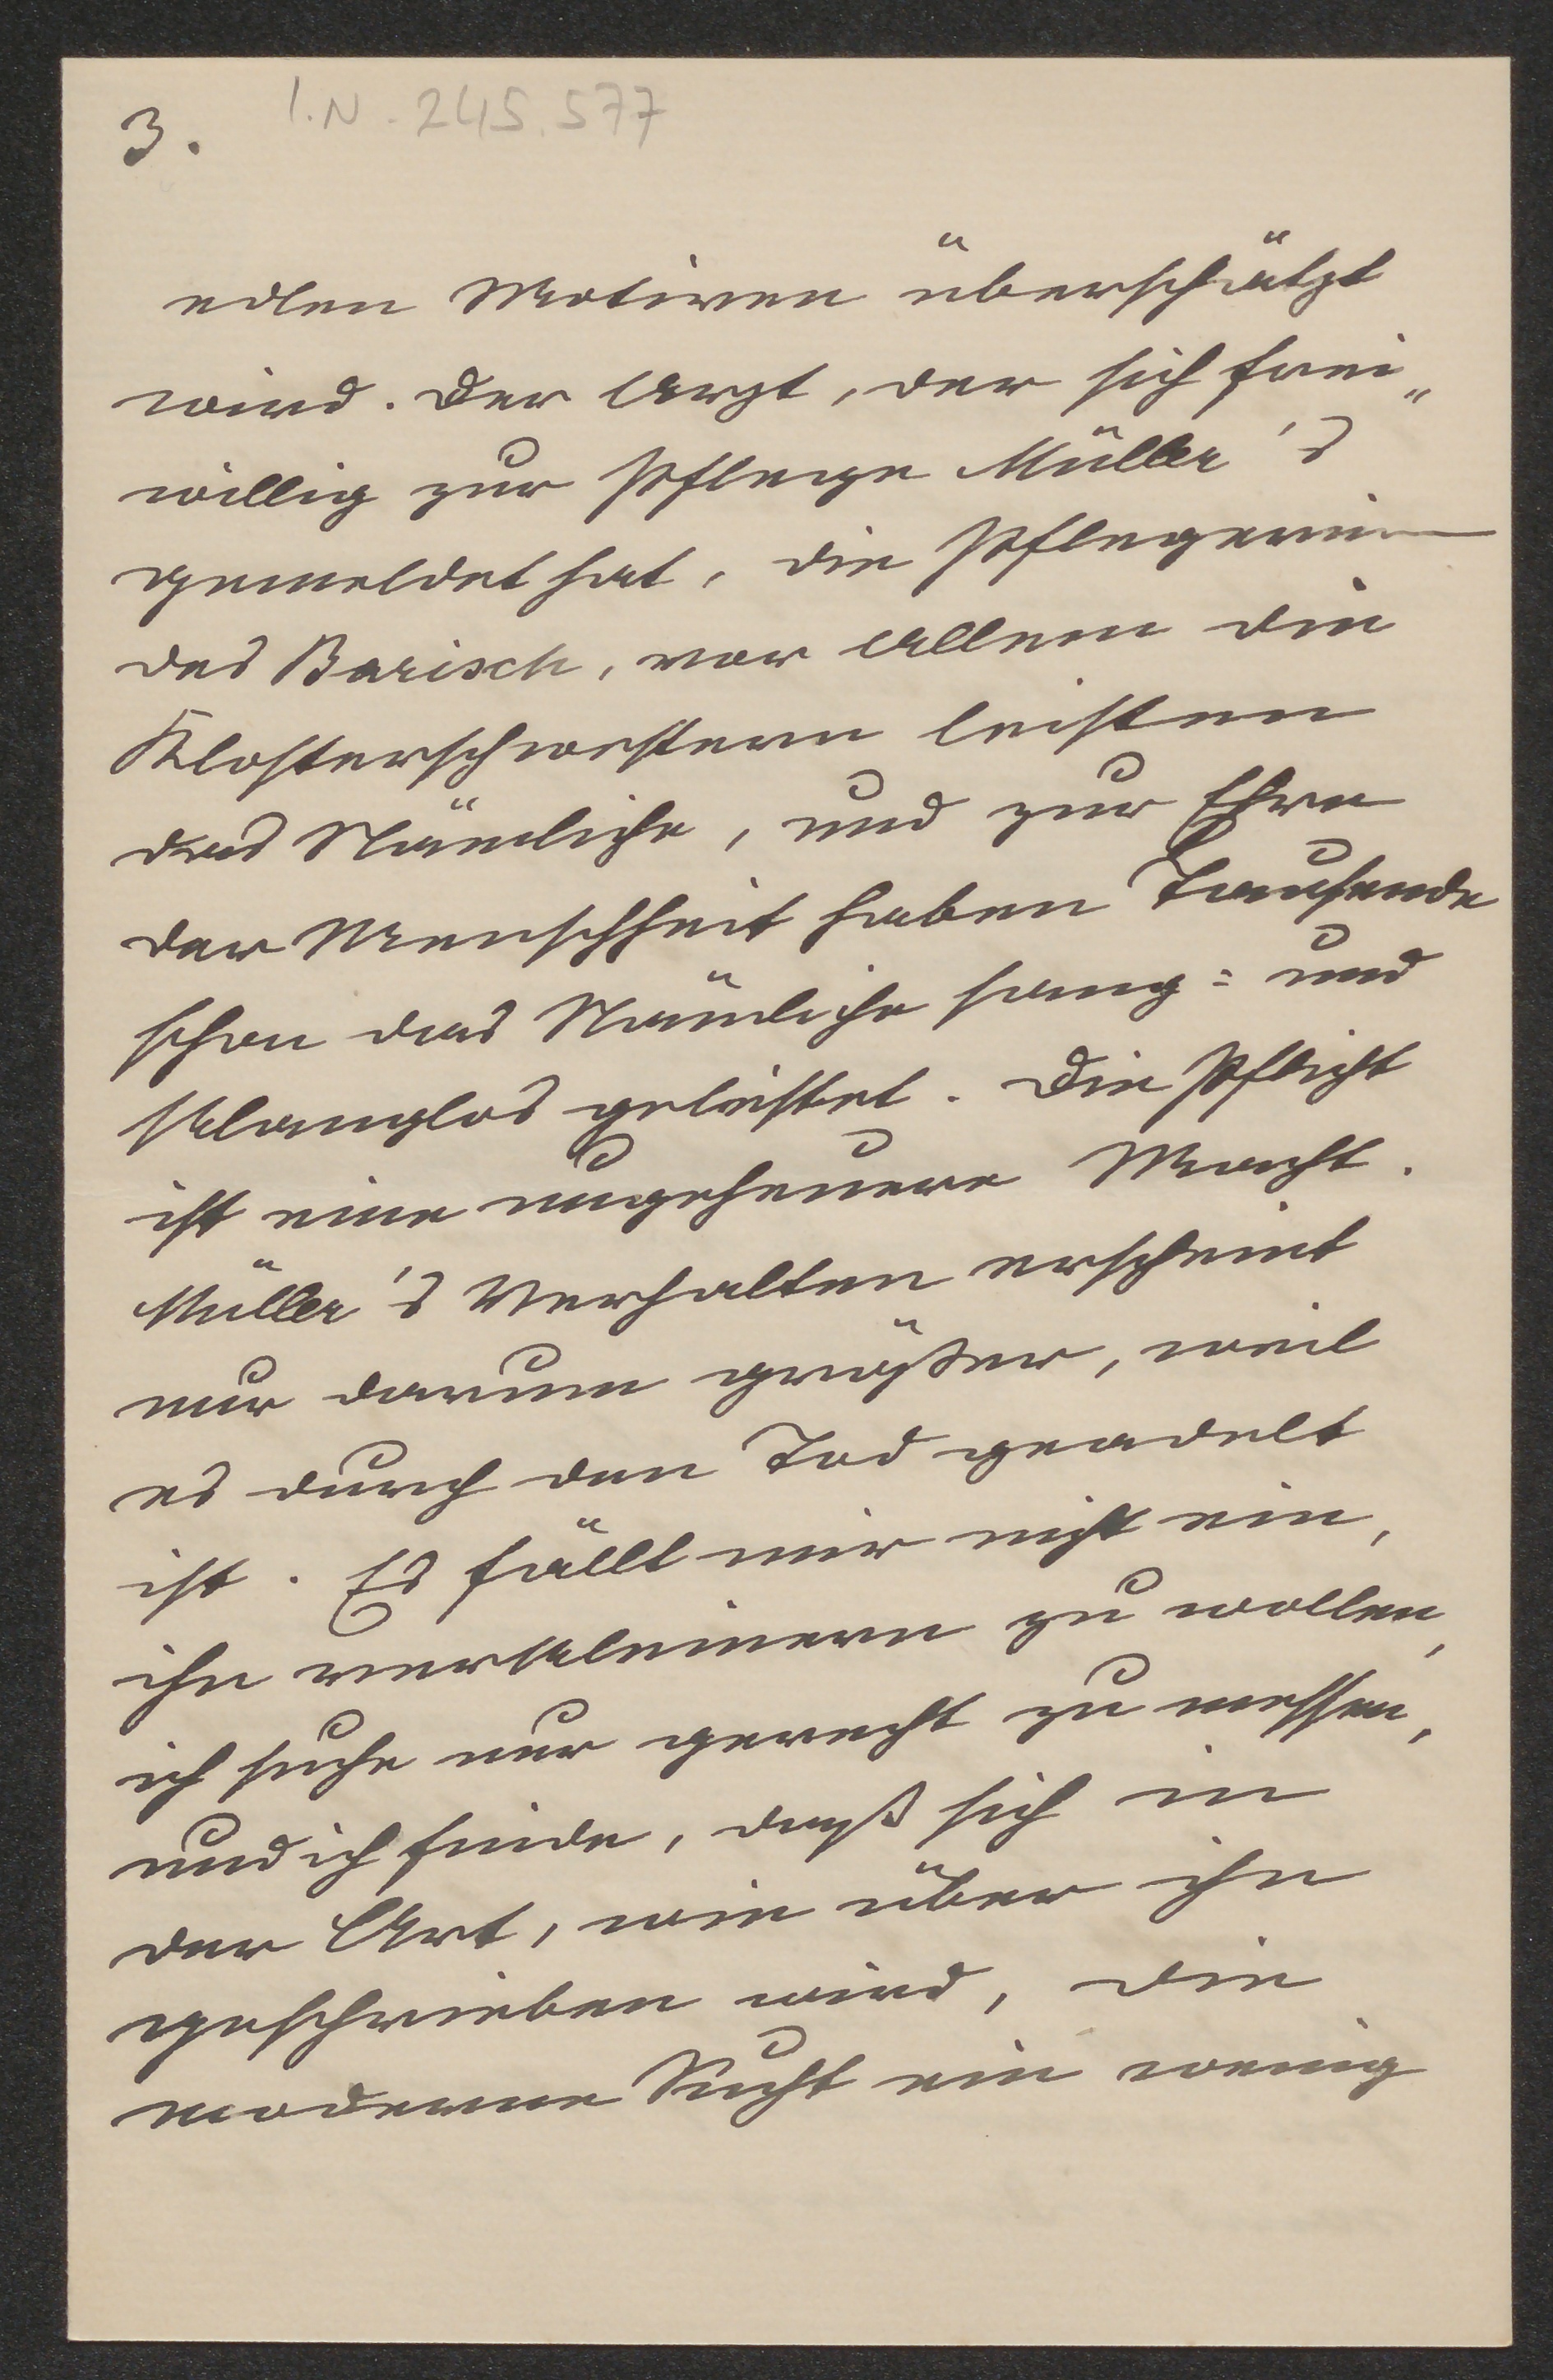 3.
I.N. 245.577
edlen Motiven überschätzt
wird. Der Arzt, der sich frei„
willig zur Pflege Müller's
gemeldet hat, die Pflegerin
des Barisch, vor Allem die
Klosterschwestern leisten
das Nämliche, und zur Ehre
der Menschheit haben Tausende
schon das Nämliche sang= und
klanglos geleistet. Die Pflicht
ist eine ungeheuere Macht.
Müller's Verhalten erscheint
nur darum größer, weil
es durch den Tod geadelt
ist. Es fällt mir nicht ein,
ihn verkleinern zu wollen,
ich suche nur gerecht zu messen,
und ich finde, daß sich in
der Art, wie über ihn
geschrieben wird, die
moderne Sucht ein wenig